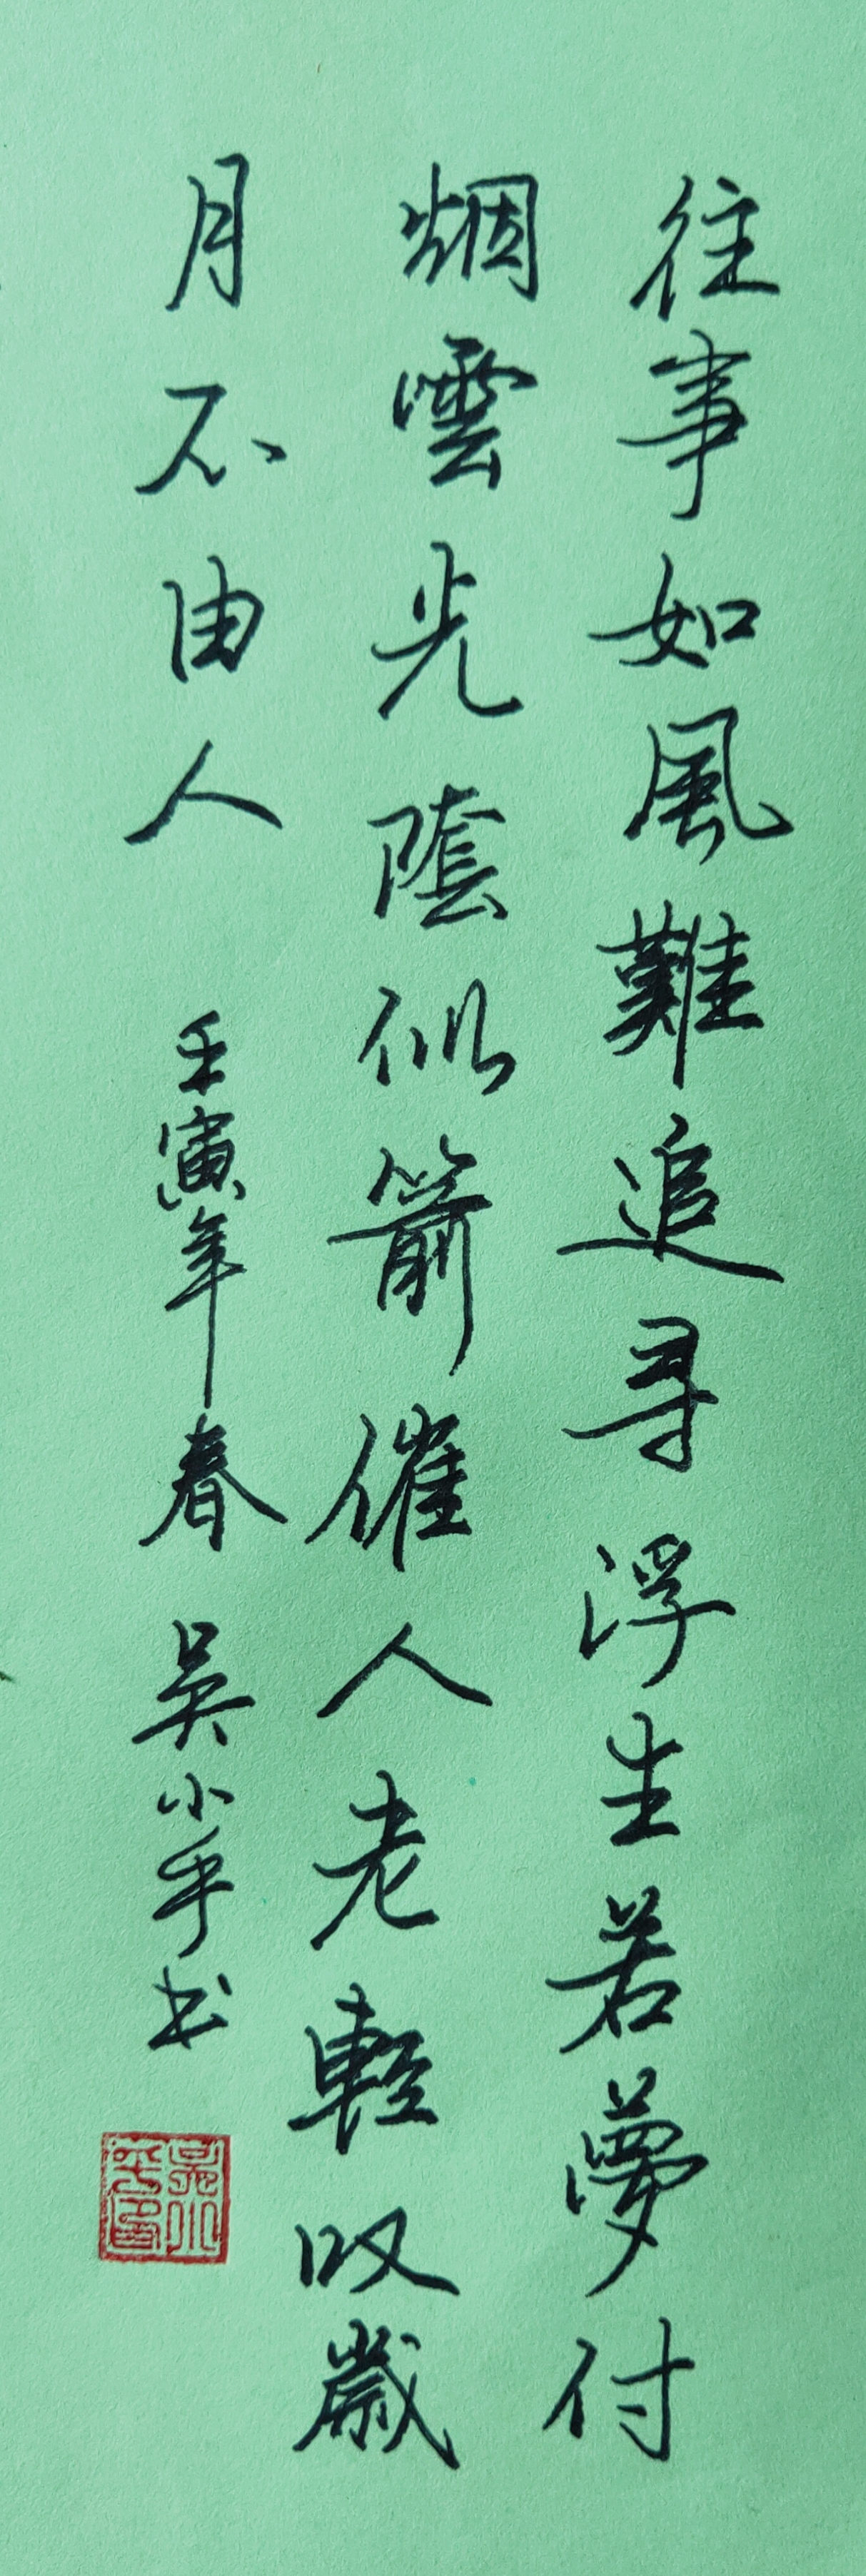 往事如風難追寻浮生若夢付
烟雲光陰似箭催人老輕叹歲
月不由人 壬寅年春 吴小平书
吴小平印